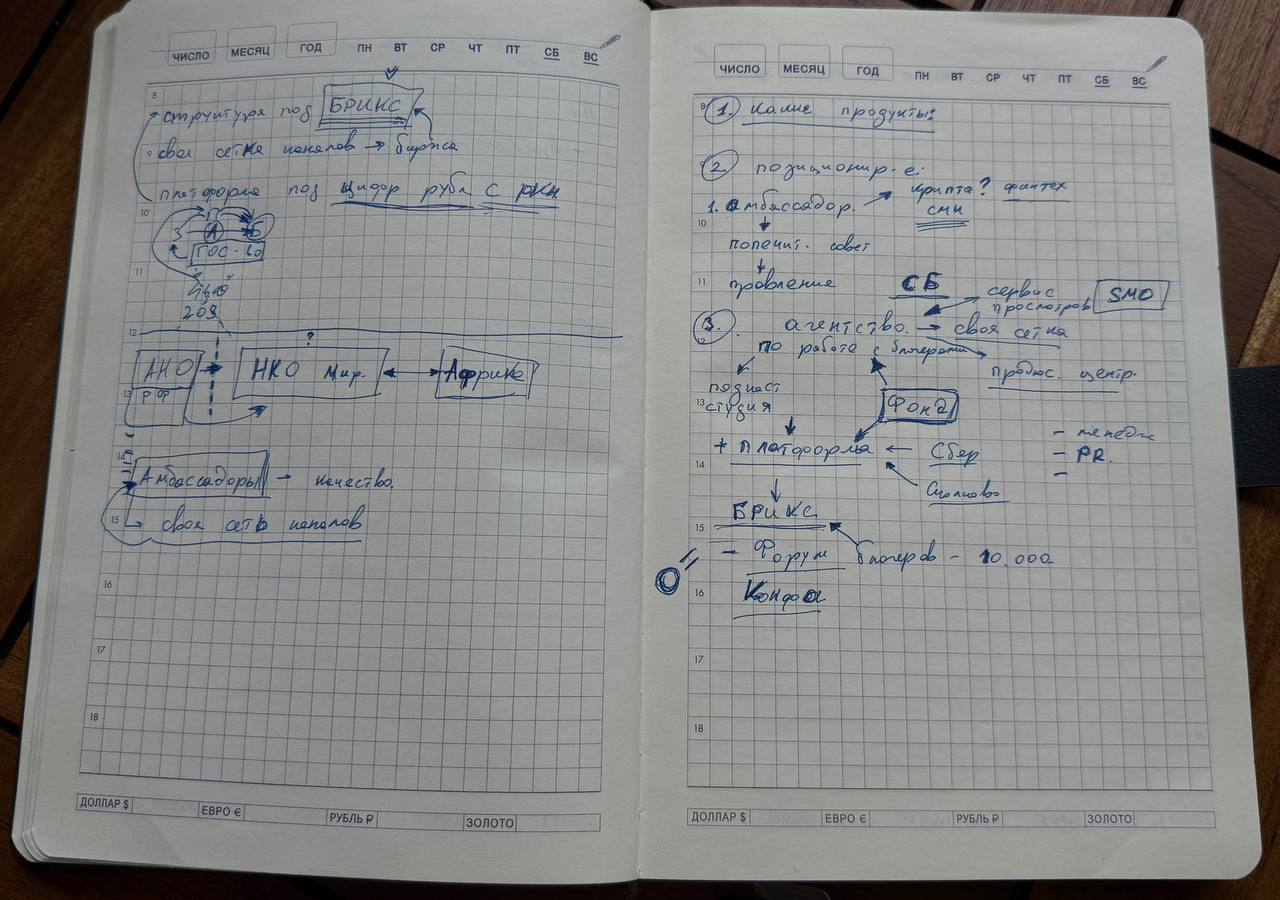 ЧИСЛО МЕСЯЦ ГОД ПН ВТ СР ЧТ ПТ СБ ВС
8
структура под БРИКС
своя сетка каналов → биржа
платформа под цифр рубл с ркн
10
П
З А Б
ГОС-во
11
209
12
?
АНО → НКО мир. ↔ Африка
РФ
13
14
Амбассадоры → качество.
15
→ своя сеть каналов
16
17
18
ДОЛЛАР $ ЕВРО € РУБЛЬ ₽ ЗОЛОТО
ЧИСЛО МЕСЯЦ ГОД ПН ВТ СР ЧТ ПТ СБ ВС
1. Какие продукты:
2. позиционир-е:
1. амбассадор. → крипта? финтех
СМИ
10
попечит. совет
11
правление
СБ
сервис просмотров SMO
3. агентство. → своя сетка
12
по работе с блогерами
продюс. центр.
подкаст студия
13
Фонд
+ платформа ← Сбер
- менедж
- PR.
-
14
Сколково
БРИКС
15
- Форум блогеров - 10.000
16
17
18
ДОЛЛАР $ ЕВРО € РУБЛЬ ₽ ЗОЛОТО